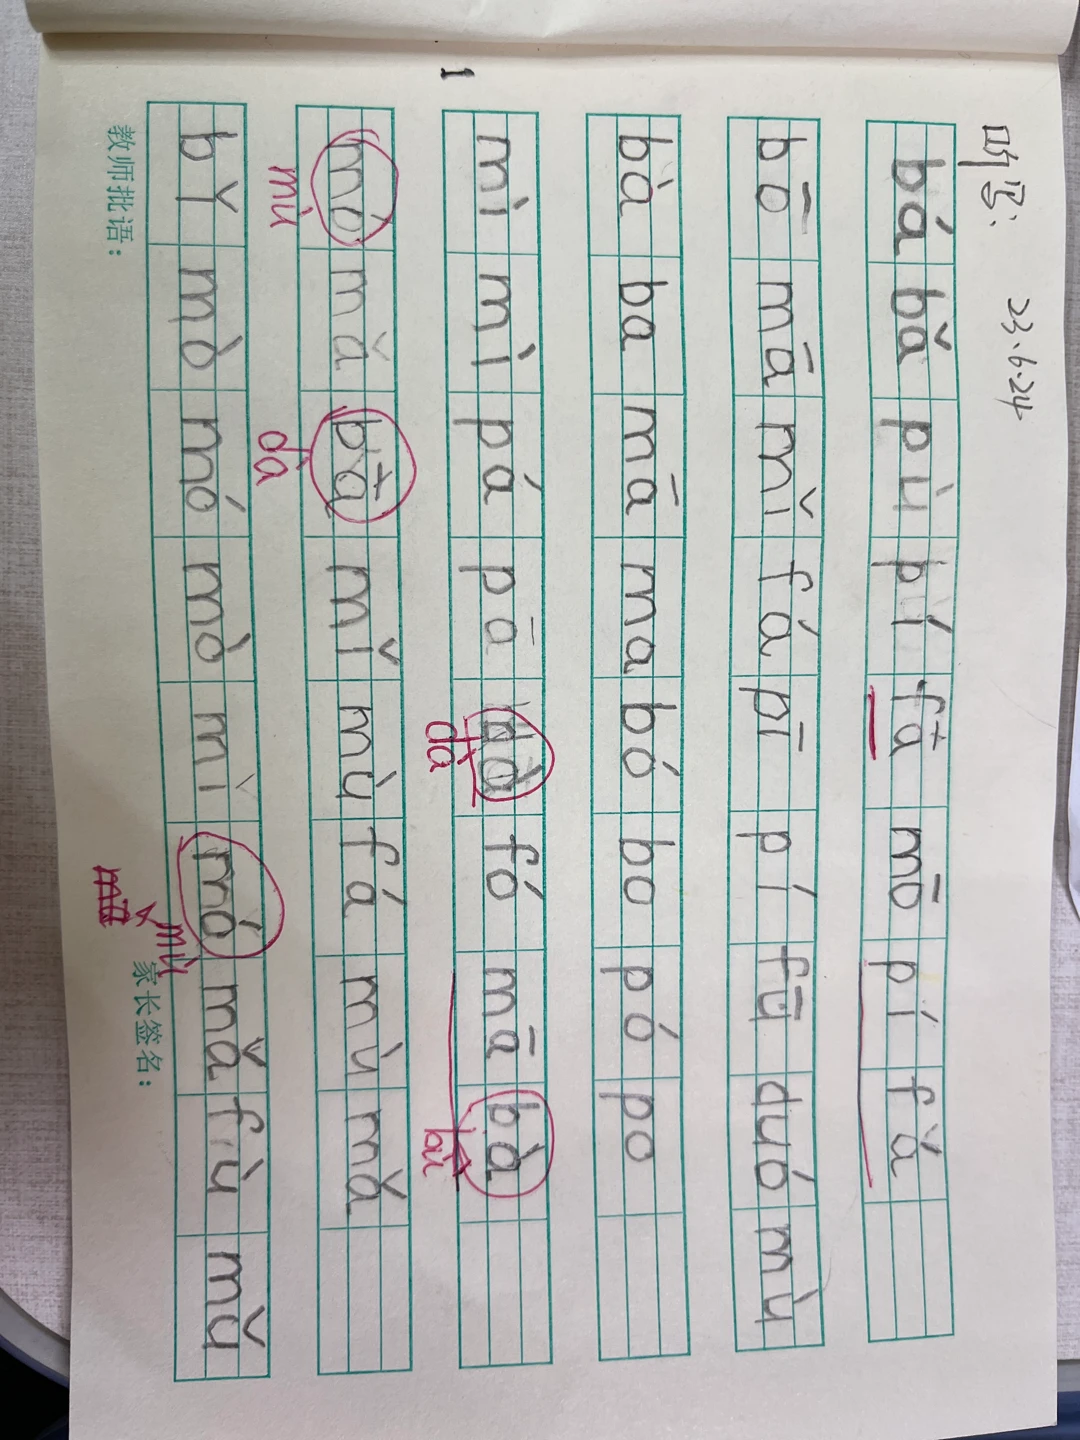 听写: 23.6.24
bá bǎ pù pí fà mō pí fǎ
bō mā mǐ fá pī pí fū duó mù
bà ba mā ma bó bo pó po
1
mì mì pá pā dà fó mā bà
dà bù
mò mǎ bà mǐ mù fá mù mǎ
mù dà
bǐ mò mó mò mì mó mǎ fù mǔ
mù
教师批语: 家长签名: